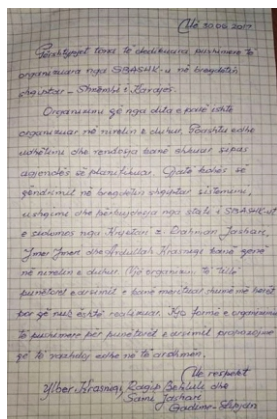 Më 30.06.2017
Përshtypjet tona të dedikuara pushimeve të
organizuara nga SBASHK-u në bregdetin
shqiptar - Shëngjin i Karajës.
Organizimi që nga dita e parë ishte
organizuar në nivelin e duhur. Poashtu edhe
udhëtimi dhe rendosja kanë shkuar sipas
agjendës së planifikuar. Gjatë kohës së
qëndrimit në bregdetin shqiptar sistemimi,
ushqimi dhe përkujdesja nga stafi i SBASHK-ut
e sidomos nga Kryetari z. Rrahman Jasharaj,
Ymer Ymeri dhe Abdullah Krasniqi kanë qenë
në nivelin e duhur. Një organizim të tillë
punëtorët e arsimit e kanë merituar shumë më herët
por që nuk është realizuar. Kjo formë e organizimit
të pushimeve për punëtorët e arsimit propozojmë
që të vazhdoj edhe në të ardhmen.
Me respekt
Ylber Krasniqi, Ragip Behluli dhe
Sami Jashari
Gadime - Lipjan